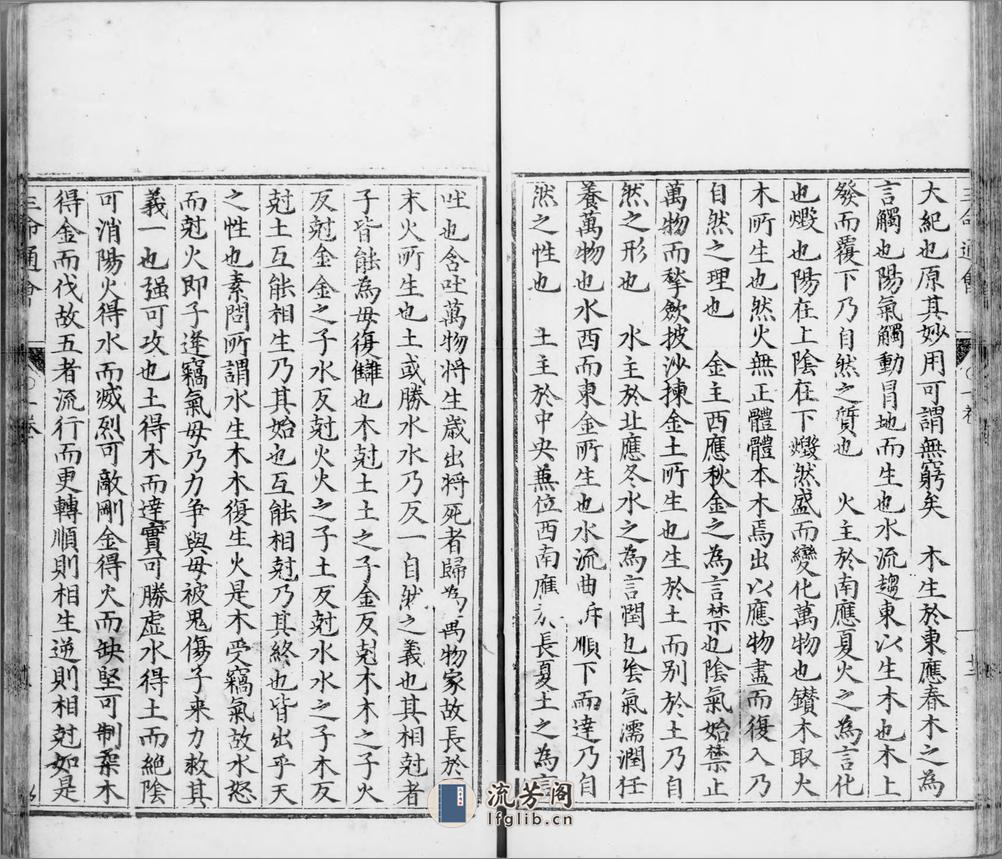 大紀也原其妙用可謂無窮矣　木生於東應春木之為
言觸也陽氣觸動冒地而生也水流趨東以生木也木上
發而覆下乃自然之質也　火主於南應夏火之為言化
也燬也陽在上陰在下燬然盛而變化萬物也鑚木取火
木所生也然火無正體體本木焉出以應物盡而復入乃
自然之理也　金主西應秋金之為言禁也陰氣始禁止
萬物而揫歛披沙揀金土所生也生於土而别於土乃自
然之形也　水主於北應冬水之為言潤也陰氣濡潤任
養萬物也水西而東金所生也水流曲折順下而達乃自
然之性也　土主於中央兼位西南應於長夏土之為言
吐也含吐萬物将生歳出将死者歸為萬物家故長於
末火所生也土或勝水水乃反一自然之義也其相尅者
子皆能為母復讎也木尅土土之子金反尅木木之子火
反尅金金之子水反尅火火之子土反尅水水之子木反
尅土互能相生乃其始也互能相尅乃其終也皆出乎天
之性也素問所謂水生木木復生火是木受竊氣故水怒
而尅火即子逢竊氣母乃力争與母被鬼傷子来力救其
義一也强可攻也土得木而達實可勝虚水得土而絶陰
可消陽火得水而滅烈可敵剛金得火而缺堅可制柔木
得金而伐故五者流行而更轉順則相生逆則相尅如是
三命通會
一卷
流芳阁
lfglib.cn